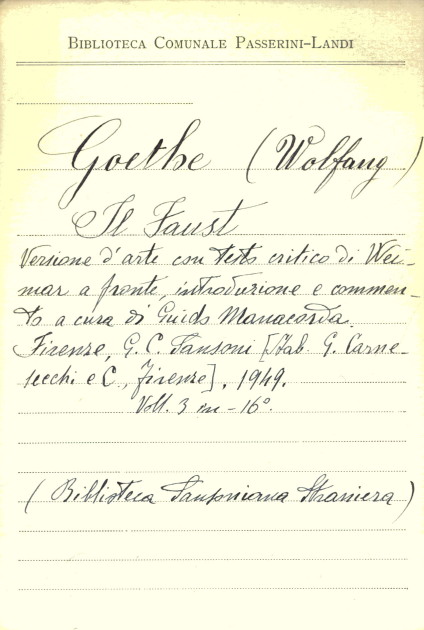 BIBLIOTECA COMUNALE PASSERINI-LANDI
Goethe (Wolfang)
Il Faust
Versione d'arte con testo critico di Wei-
mar a fronte, introduzione e commen-
to a cura di Guido Manacorda.
Firenze, G. C. Sansoni [Stab. G. Carne-
secchi e C., Firenze], 1949.
Voll. 3 in-16°.
(Biblioteca Sansoniana Straniera)